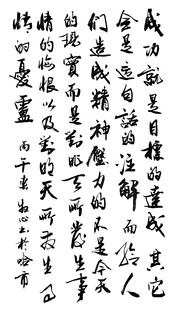 成功就是目標的達成其它
全是這句話的注解而給人
們造成精神壓力的不是今天
的現實而是對昨天所發生事
情的悔恨以及對明天所發生事
情的憂慮
牧心书於哈市